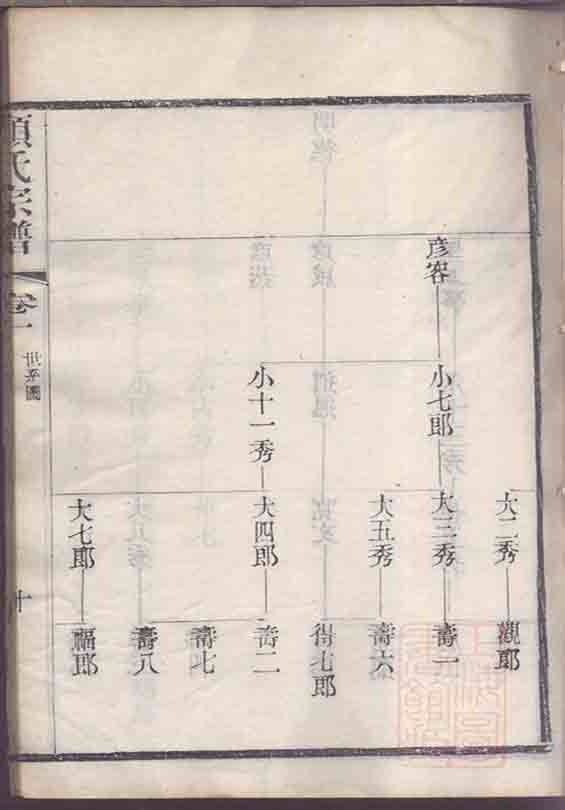 彥容
小七郎
小十一秀
大二秀
大三秀
大五秀
大四郎
大七郎
觀郎
壽一
壽六
得七郎
壽二
壽七
壽八
福郎
項氏宗譜
卷一
世系圖
十